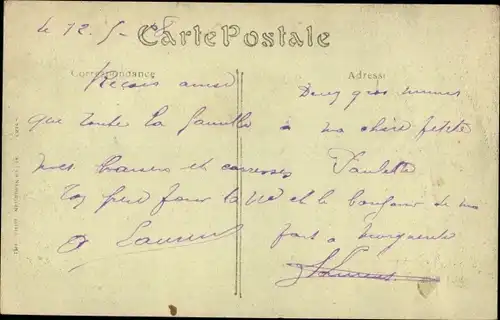 le 12. 5
Carte Postale
Correspondance
Adresse
Reçois ainsi
que toute la famille
mes baisers et caresses
Ton père pour la vie
Laurent
Deux gros mimis
à ma chère petite
Paulette
et le bonjour de ma
part à Marguerite